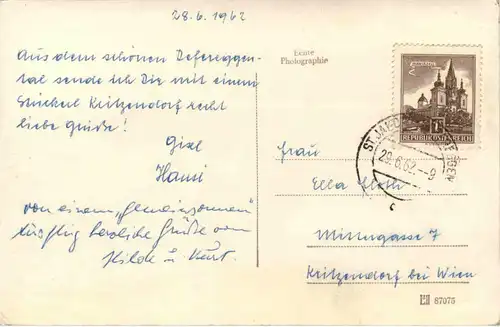 28.6.1962
Aus dem schönen Defereggen-
tal sende ich Dir mit einem
Stückerl Kritzendorf recht
liebe Grüße!
Gisl
Hansi
von einem „gemeinsamen"
Ausflug herzliche Grüße von
Hilde u. Kurt.
Echte
Photographie
S 1
REPUBLIK ÖSTERREICH
ST. JAKOB
29.6.62.-9
c
Frau
Ella
Mittergasse 7
Kritzendorf bei Wien
87075